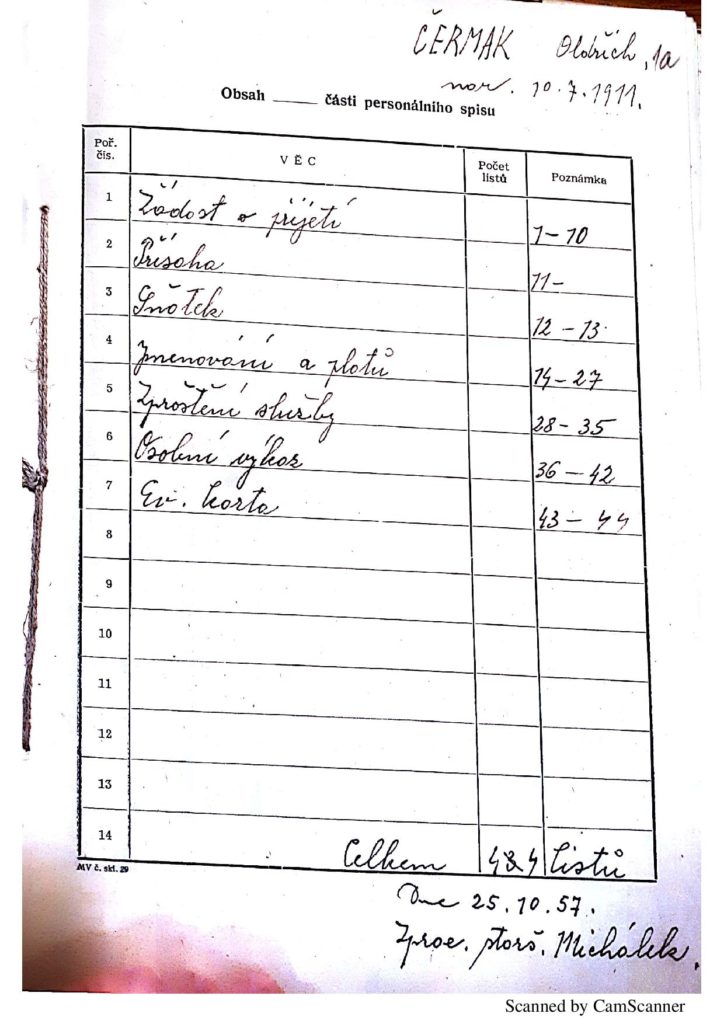 ČERMAK Oldřich, 1a
nar. 10.7.1911.
Obsah ____ části personálního spisu
Poř. čís. VĚC Počet listů Poznámka
1 Žádost o přijetí 1-10
2 Přísaha 11-
3 Sňatek 12-13
4 Jmenování a platů 14-27
5 Zproštění služby 28-35
6 Osobní výkaz 36-42
7 Ev. karta 43-44
8
9
10
11
12
13
14 Celkem listů
MV č. skl. 29
Dne 25.10.57.
Zprac. starš. Michálek.
Scanned by CamScanner